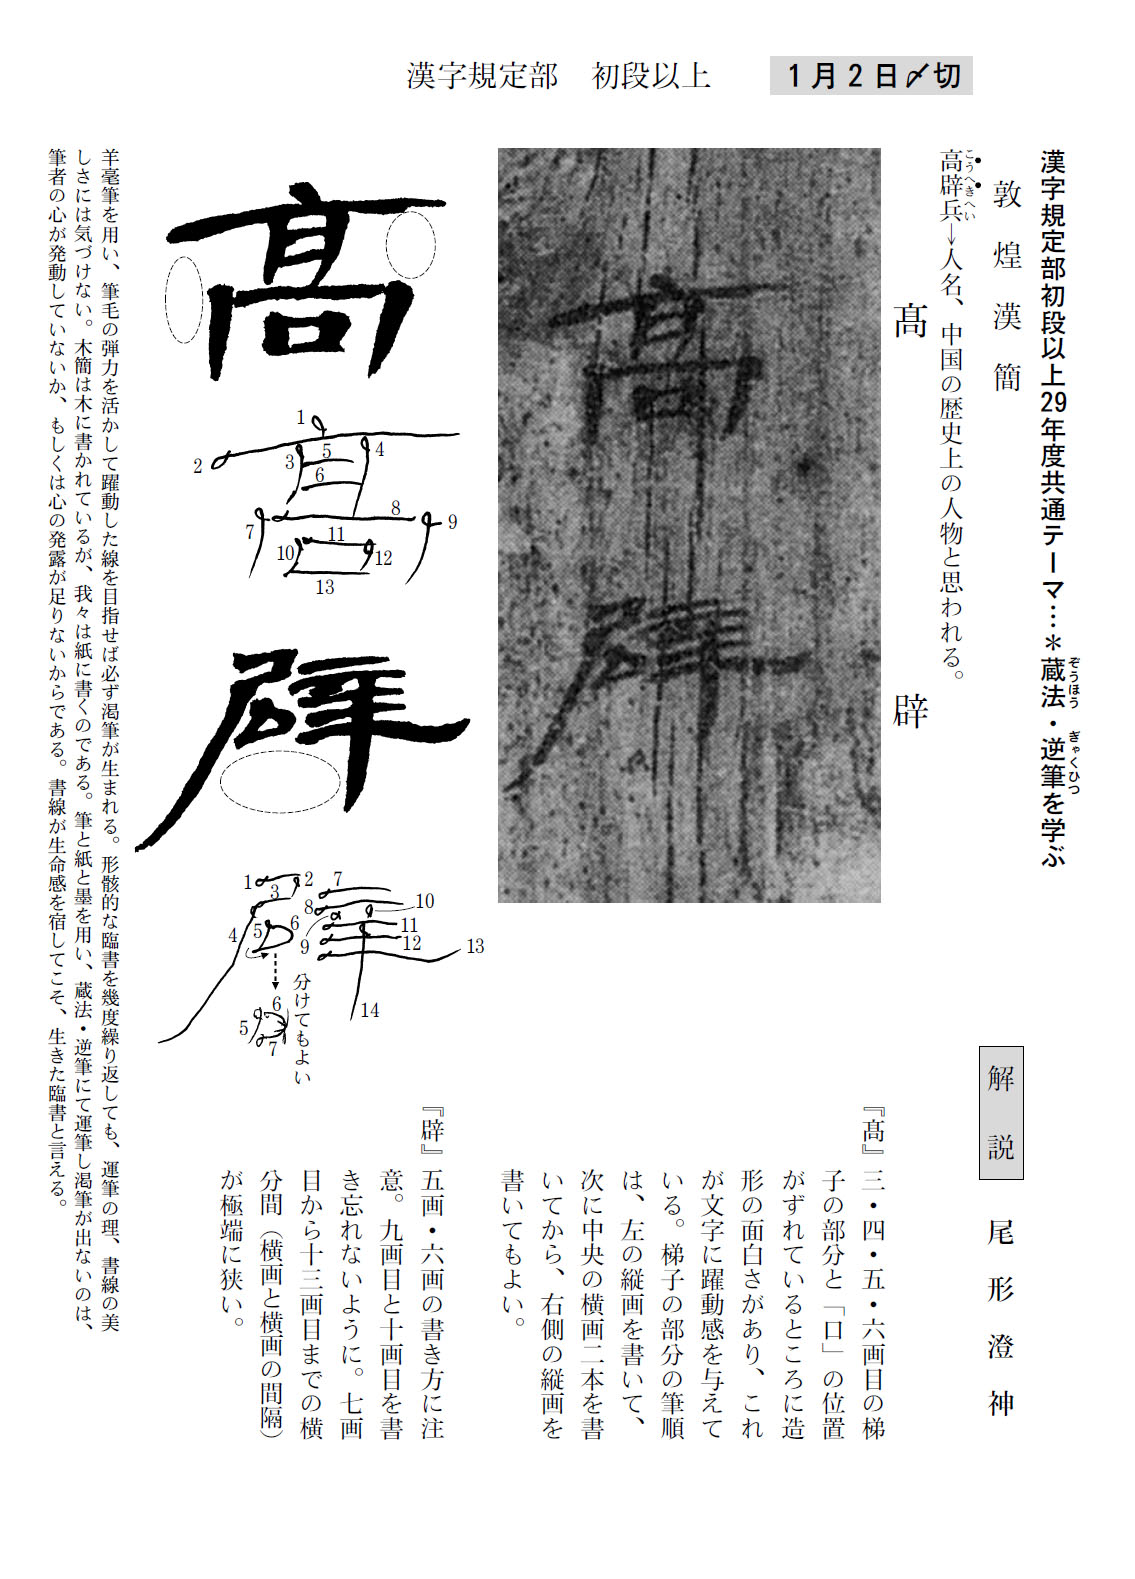 漢字規定部　初段以上
1月2日〆切
漢字規定部初段以上29年度共通テーマ…＊蔵法・逆筆を学ぶ
ぞうほう
ぎゃくひつ
敦煌漢簡
高辟兵→人名、中国の歴史上の人物と思われる。
こうへきへい
髙
辟
髙
1
2
3
4
5
6
7
8
9
10
11
12
13
辟
1
2
3
4
5
6
7
8
9
10
11
12
13
14
5
6
7
分けてもよい
解説
尾形澄神
『髙』三・四・五・六画目の梯
子の部分と「口」の位置
がずれているところに造
形の面白さがあり、これ
が文字に躍動感を与えて
いる。梯子の部分の筆順
は、左の縦画を書いて、
次に中央の横画二本を書
いてから、右側の縦画を
書いてもよい。
『辟』五画・六画の書き方に注
意。九画目と十画目を書
き忘れないように。七画
目から十三画目までの横
分間（横画と横画の間隔）
が極端に狭い。
羊毫筆を用い、筆毛の弾力を活かして躍動した線を目指せば必ず渇筆が生まれる。形骸的な臨書を幾度繰り返しても、運筆の理、書線の美
しさには気づけない。木簡は木に書かれているが、我々は紙に書くのである。筆と紙と墨を用い、蔵法・逆筆にて運筆し渇筆が出ないのは、
筆者の心が発動していないか、もしくは心の発露が足りないからである。書線が生命感を宿してこそ、生きた臨書と言える。